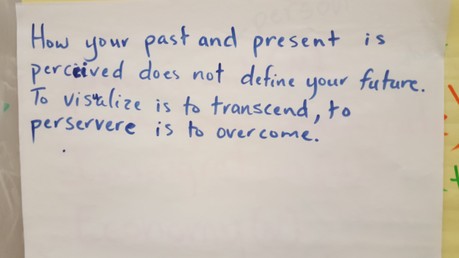 How your past and present is
perceived does not define your future.
To visualize is to transcend, to
perservere is to overcome.